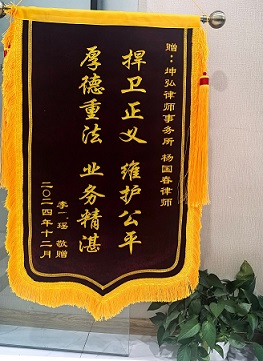 赠：坤弘律师事务所 杨国春律师
捍卫正义 维护公平
厚德重法 业务精湛
李一瑶 敬赠
二〇二四年十二月